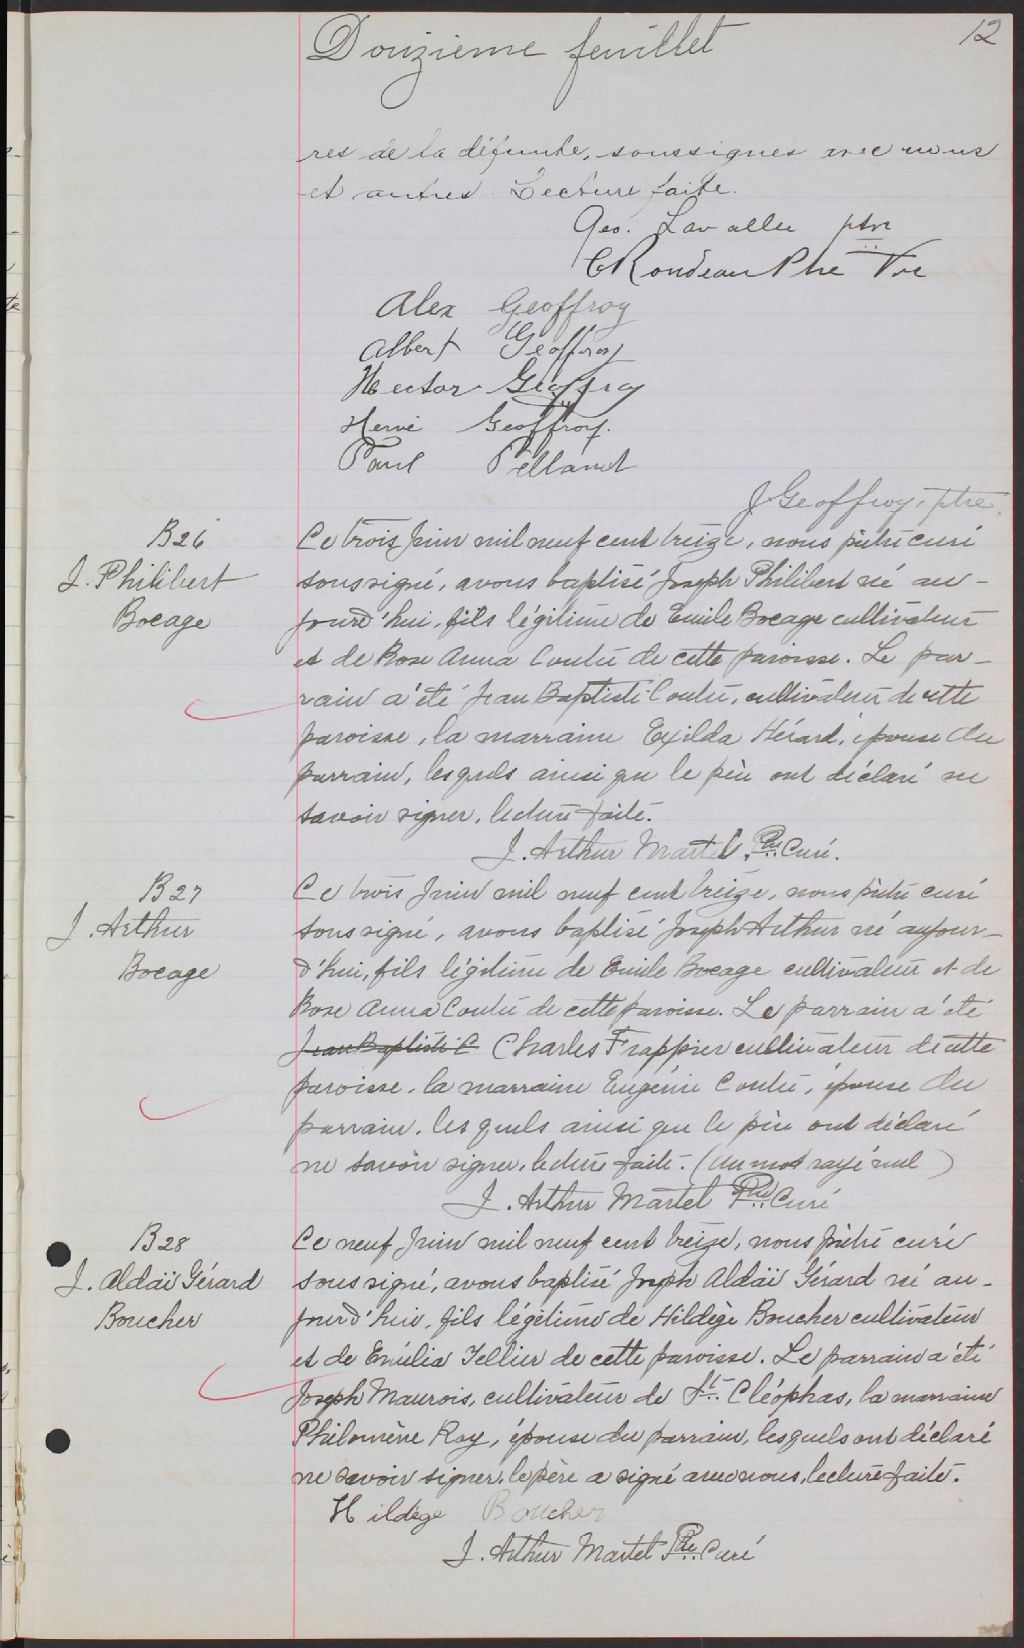 Douzième feuillet
12
res de la défunte, soussignés avec nous
et autres. Lecture faite.
Geo. Lavallee ptre
C Rondeau Ptre Vre
Alex Geoffroy
Albert Geoffroy
Hector Geoffroy
Hervé Geoffroy.
Paul Pelland
J Geoffroy, ptre.
B26
J. Philibert
Bocage
Ce trois Juin mil neuf cent treize, nous prêtre curé
soussigné, avons baptisé Joseph Philibert né au-
jourd'hui, fils légitime de Emile Bocage cultivateur
et de Rose Anna Coutu de cette paroisse. Le par-
rain a été Jean Baptiste Coutu, cultivateur de cette
paroisse, la marraine Exilda Hérard, épouse du
parrain, lesquels ainsi que le père ont déclaré ne
savoir signer, lecture faite.
J. Arthur Martel, Ptre Curé.
B27
J. Arthur
Bocage
Ce trois Juin mil neuf cent treize, nous prêtre curé
soussigné, avons baptisé Joseph Arthur né aujour-
d'hui, fils légitime de Emile Bocage cultivateur et de
Rose Anna Coutu de cette paroisse. Le parrain a été
Jean Baptiste C Charles Frappier cultivateur de cette
paroisse, la marraine Eugénie Coutu, épouse du
parrain, lesquels ainsi que le père ont déclaré
ne savoir signer, lecture faite. (Un mot rayé nul)
J. Arthur Martel Ptre Curé
B28
J. Aldaï Gérard
Boucher
Ce neuf Juin mil neuf cent treize, nous prêtre curé
soussigné, avons baptisé Joseph Aldaï Gérard né au-
jourd'hui, fils légitime de Hildège Boucher cultivateur
et de Emélia Tellier de cette paroisse. Le parrain a été
Joseph Maurois, cultivateur de St. Cléophas, la marraine
Philomène Roy, épouse du parrain, lesquels ont déclaré
ne savoir signer, le père a signé avec nous, lecture faite.
Hildège Boucher
J. Arthur Martel Ptre Curé